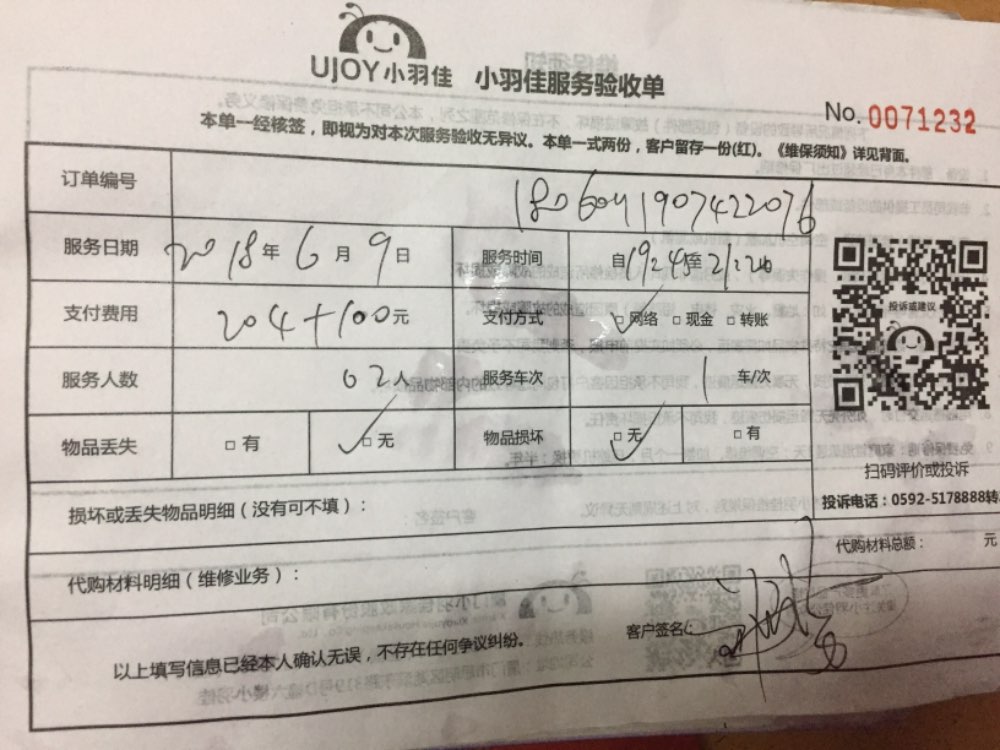 UJOY小羽佳 小羽佳服务验收单
No. 0071232
本单一经核签，即视为对本次服务验收无异议。本单一式两份，客户留存一份(红)。《维保须知》详见背面。
订单编号 1806041907422076
服务日期 2018年6月9日 服务时间 自19:45至21:20
支付费用 204+100元 支付方式 ☑网络 □现金 □转账
服务人数 02人 服务车次 1 车/次
物品丢失 □有 ☑无 物品损坏 ☑无 □有
投诉或建议
扫码评价或投诉
投诉电话：0592-5178888转
损坏或丢失物品明细（没有可不填）：
代购材料总额： 元
代购材料明细（维修业务）：
客户签名：
以上填写信息已经本人确认无误，不存在任何争议纠纷。